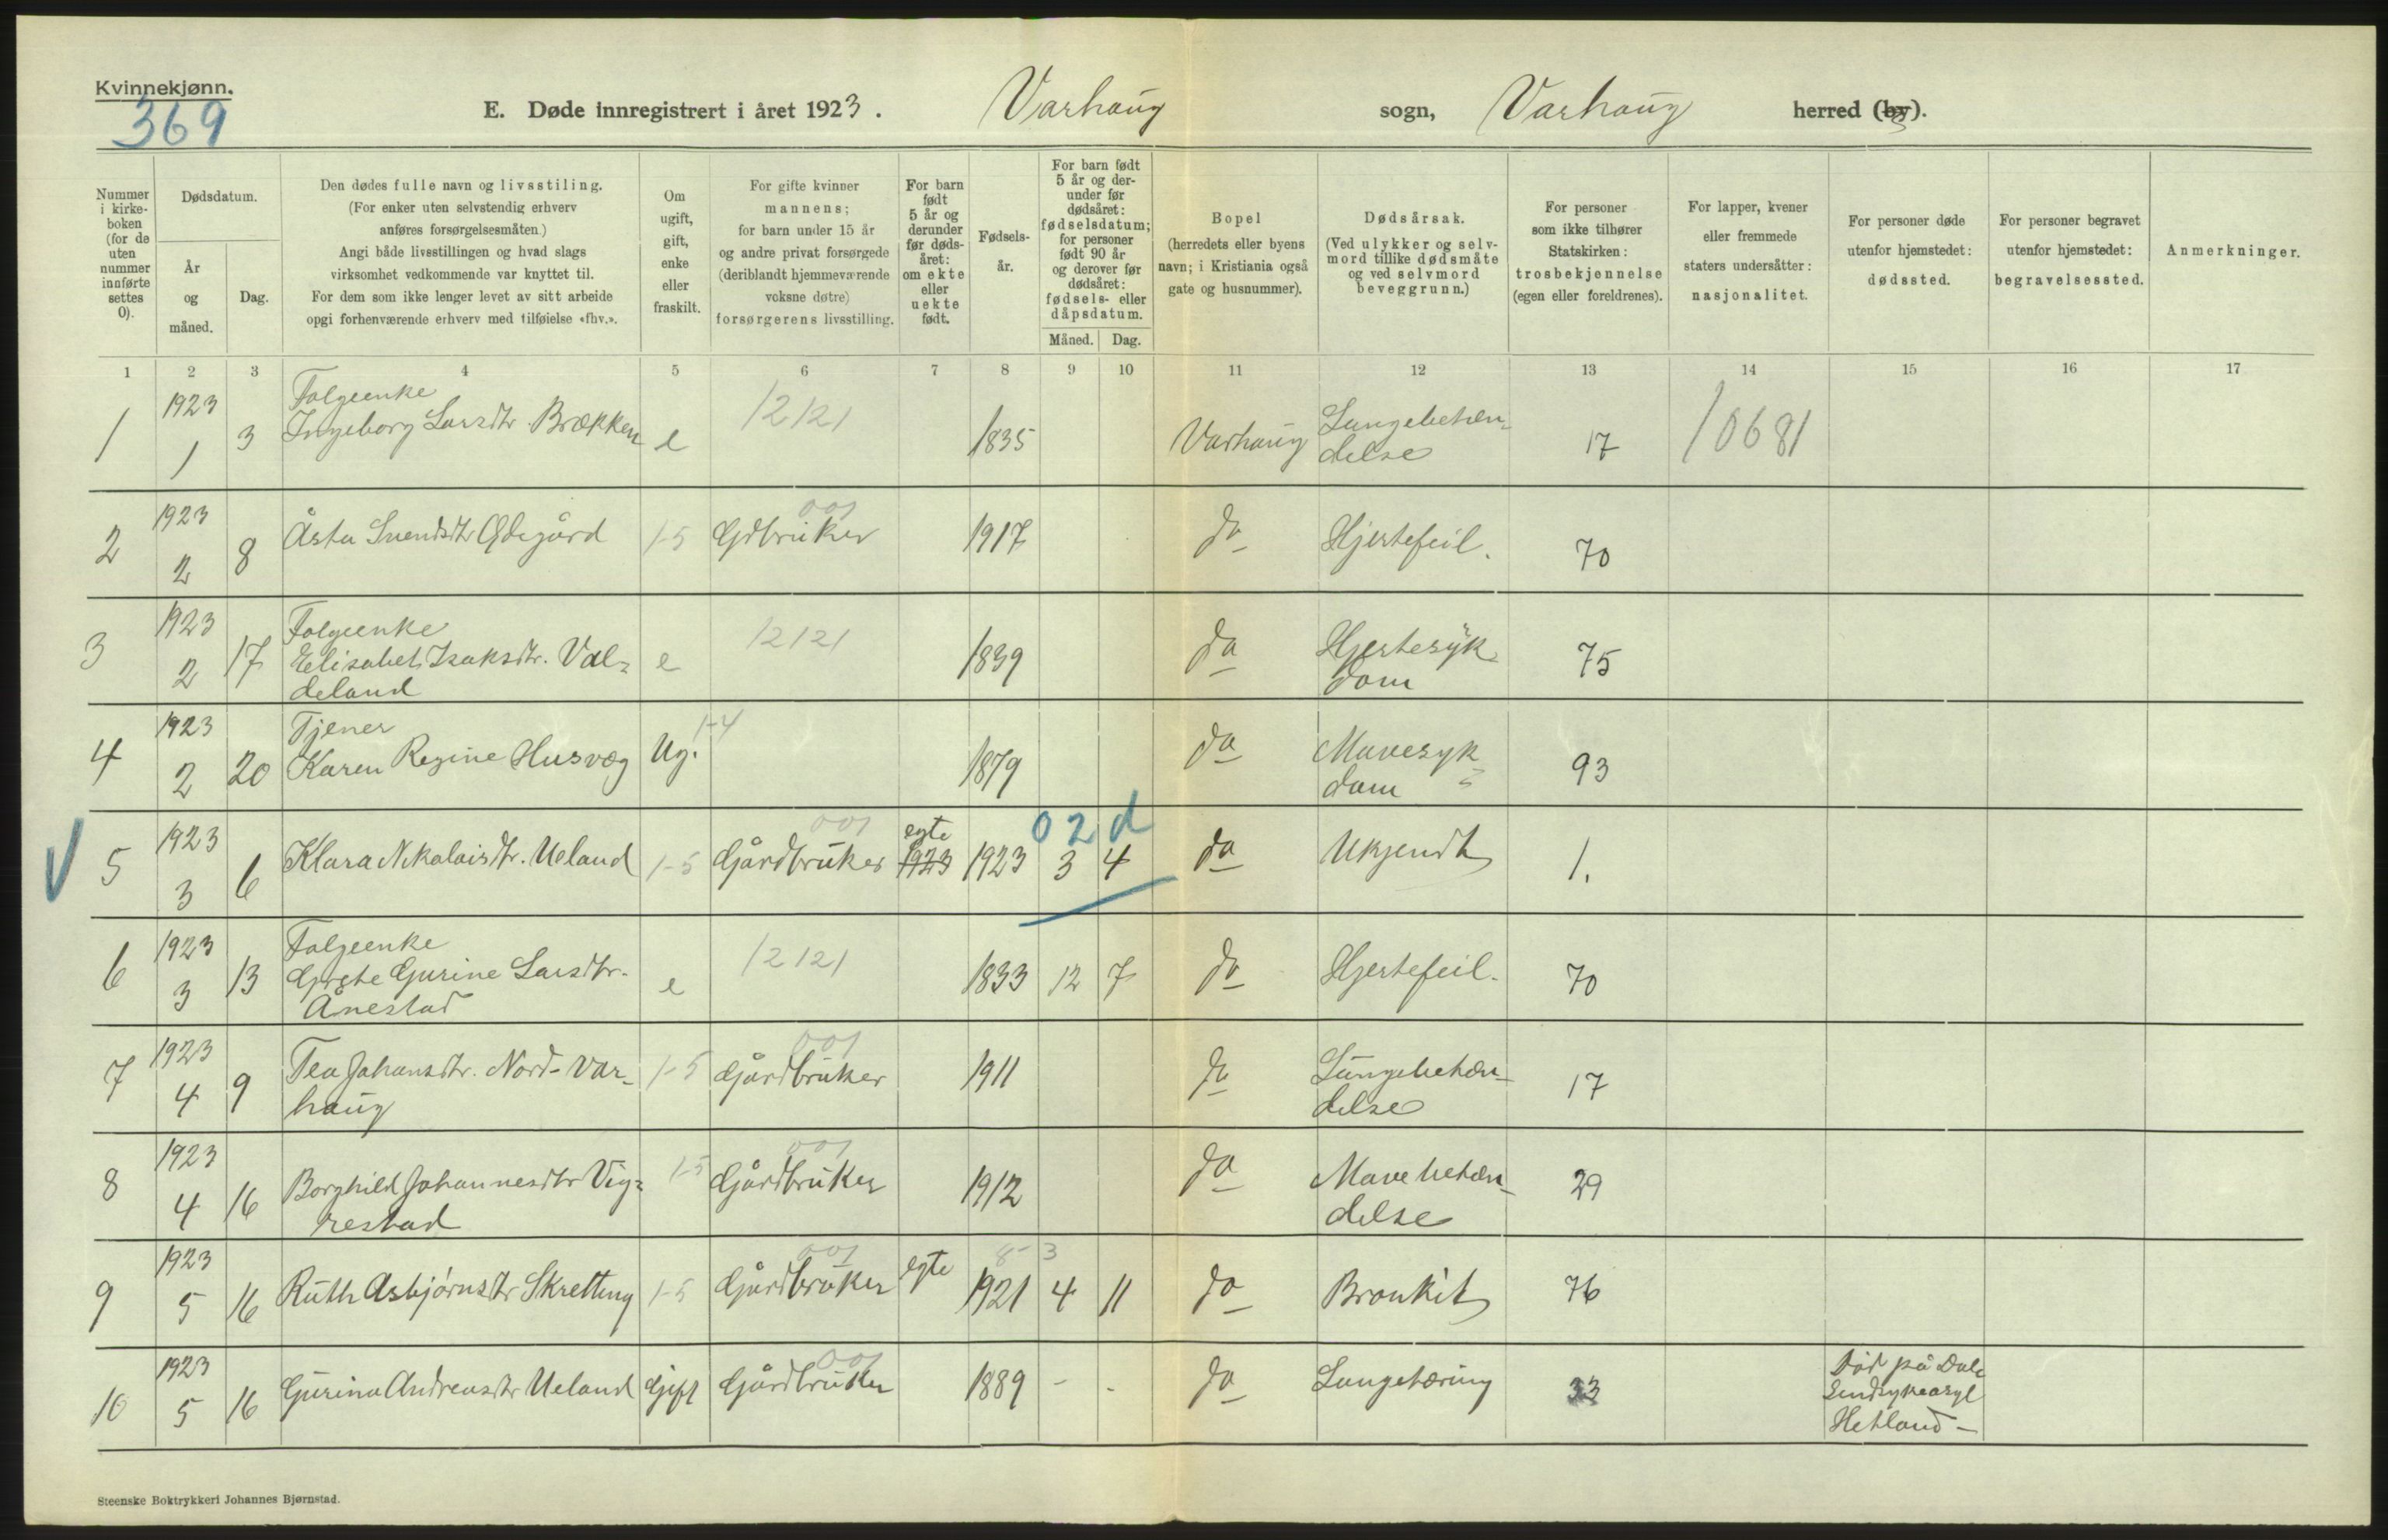 Kvinnekjønn.
369
E. Døde innregistrert i året 1923. Varhaug sogn, Varhaug herred (by).
Nummer i kirke-boken (for de uten nummer innførte settes 0).
Dødsdatum.
År og måned.
Dag.
Den dødes fulle navn og livsstiling.
(For enker uten selvstendig erhverv
anføres forsørgelsesmåten.)
Angi både livsstillingen og hvad slags
virksomhet vedkommende var knyttet til.
For dem som ikke lenger levet av sitt arbeide
opgi forhenværende erhverv med tilføielse «fhv.».
Om
ugift,
gift,
enke
eller
fraskilt.
For gifte kvinner
mannens;
for barn under 15 år
og andre privat forsørgede
(deriblandt hjemmeværende
voksne døtre)
forsørgerens livsstilling.
For barn
født
5 år og
derunder
før døds-
året:
om ekte
eller
uekte
født.
Fødsels-
år.
For barn født
5 år og der-
under før
dødsåret:
fødselsdatum;
for personer
født 90 år
og derover før
dødsåret:
fødsels- eller
dåpsdatum.
Måned. Dag.
Bopel
(herredets eller byens
navn; i Kristiania også
gate og husnummer).
Dødsårsak.
(Ved ulykker og selv-
mord tillike dødsmåte
og ved selvmord
beveggrunn.)
For personer
som ikke tilhører
Statskirken:
trosbekjennelse
(egen eller foreldrenes).
For lapper, kvener
eller fremmede
staters undersåtter:
nasjonalitet.
For personer døde
utenfor hjemstedet:
dødssted.
For personer begravet
utenfor hjemstedet:
begravelsessted.
Anmerkninger.
1 2 3 4 5 6 7 8 9 10 11 12 13 14 15 16 17
1 1923 1 3 Folgeenke
Ingeborg Larsdtr. Brækken e 12121 1835 Varhaug Lungebetæn-
delse 17 10681
2 1923 2 8 Åsta Svendsdtr Ødegård 1-5 Gdbruker 001 1917 do Hjertefeil. 70
3 1923 2 17 Folgeenke
Elisabet Isaksdtr. Val-
deland e 12121 1839 do Hjertesyk-
dom 75
4 1923 2 20 Tjener
Karen Regine Husvæg Ug. 1-4 1879 do Mavesyk-
dom 93
V 5 1923 3 6 Klara Nikolaisdtr. Ueland 1-5 Gårdbruker 001 egte 1923 1923 3 4 02d do Ukjendt 1.
6 1923 3 13 Folgeenke
Grete Gurine Larsdtr.
Ånestad e 12121 1833 12 7 do Hjertefeil. 70
7 1923 4 9 Tea Johansdtr. Nord-Var-
haug 1-5 Gårdbruker 001 1911 do Lungebetæn-
delse 17
8 1923 4 16 Borghild Johannesdtr Vig-
restad 1-5 Gårdbruker 001 1912 do Mavebetæn-
delse 29
9 1923 5 16 Ruth Asbjørnsdtr Skretting 1-5 Gårdbruker 001 egte 8-3 1921 4 11 do Bronkit 76
10 1923 5 16 Gurina Andreasdtr Ueland Gift Gårdbruker 001 1889 - - do Lungetæring 33 Død på Dale
Sindsykeasyl
Hetland -
Steenske Boktrykkeri Johannes Bjørnstad.